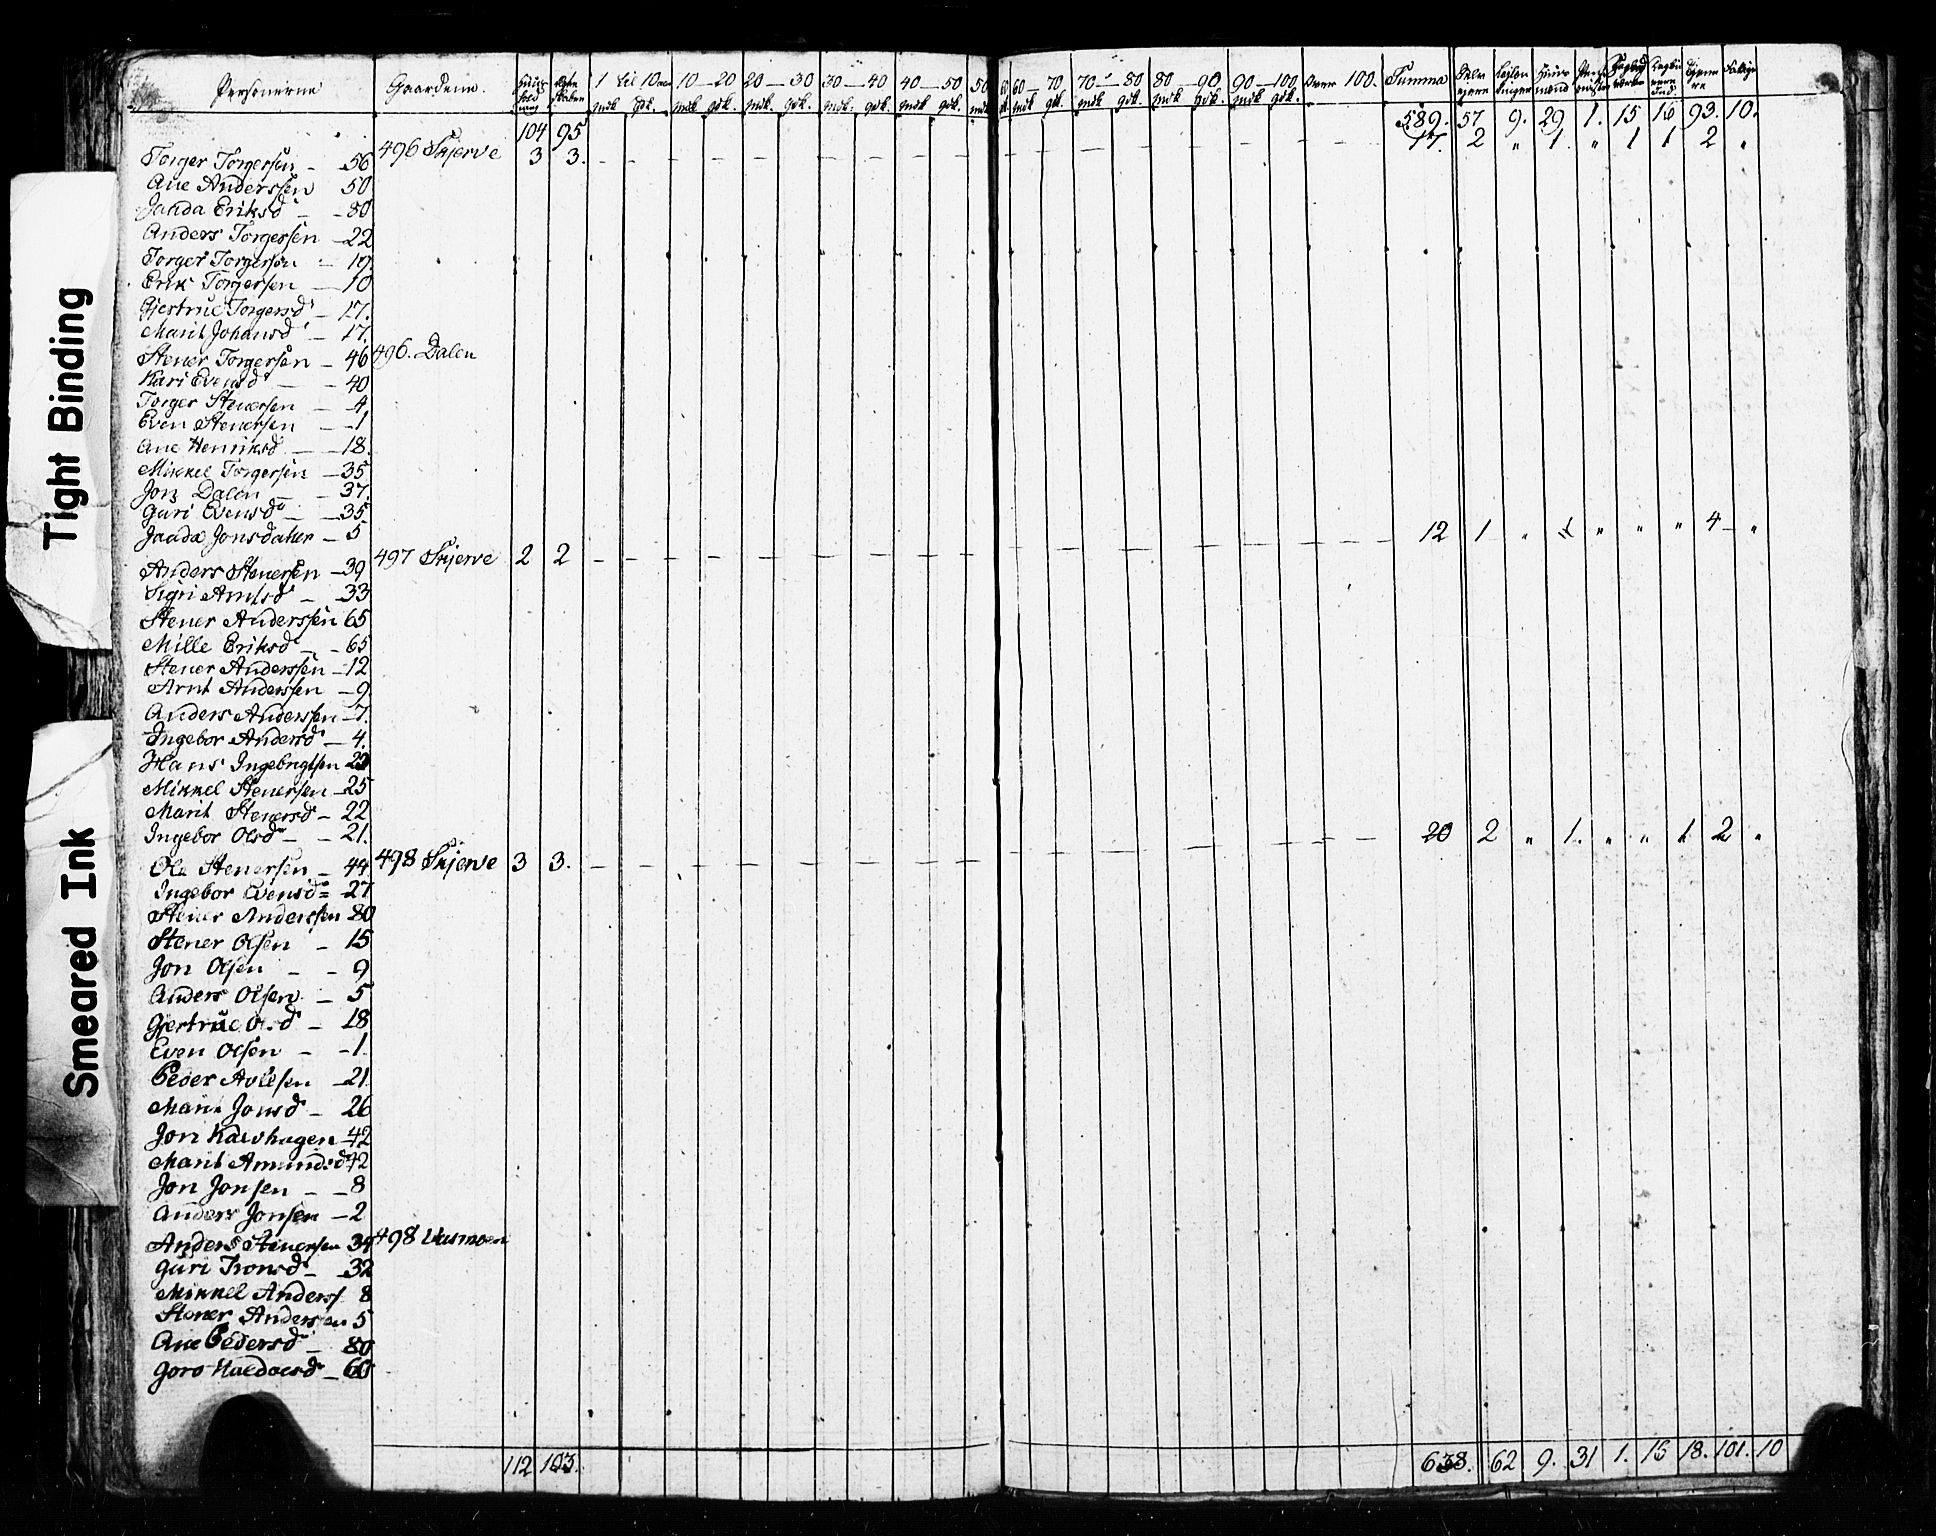 Tight Binding
Smeared Ink
Personerne Gaardene. 1 til 10 10–20 20–30 30–40 40–50 50 60–70 70–80 80–90 90–100 over 100. Summa
mdk. qdk. mdk. qdk. mdk. qdk. mdk. qdk. mdk. qdk. mdk. mdk. qdk. mdk. qdk. mdk. qdk. mdk. qdk.
104 95 589. 57 9. 29 1. 15 16 93. 10.
Torger Torgersen – 56 496 Skjerve 3 3. 17. 2 „ 1. „ 1 1 2 „
Ane Anderssen 50
Janda Eriksd – 80
Anders Torgersen – 22
Torger Torgersen – 19.
Erik Torgersen – 10
Gjertrue Torgersd – 17.
Marit Johansd – 17.
Stener Torgersen – 46 496. Dalen
Kari Evensd – 40
Torger Stenersen – 4
Even Stenersen – 1
Ane Henriksd – 18.
Mikkel Torgersen – 35
Jon Dalen – 37.
Guri Evensd – 35
Jaada Jonsdatter – 5
Anders Stenersen – 39 497 Skjerve 2 2 12 1 „ „ „ „ 4 – „
Sigri Arntsd – 33
Stener Anderssen 65
Mille Eriksd – 65
Stener Anderssen – 12
Arnt Anderssen – 9
Anders Anderssen – 7.
Ingebor Andersd – 4.
Hans Ingebrigtsen
Mikkel Stenersen – 25
Marit Stenersd – 22
Ingebor Olsd – 21.
Ole Stenersen – 44 498 Skjerve 3 3. 20 2 „ 1. „ „ 1 2 „
Ingebor Evensd – 27
Stener Anderssen 80
Stener Olsen – 15
Jon Olsen – 9
Anders Olsen – 5
Gjertrue Olsd – 18
Even Olsen – 1.
Peder Avelsen – 21
Marit Jonsd – 26
Jon Kalvhagen – 42
Marit Amundsd 42
Jon Jonsen – 8
Anders Jonsen – 2
Anders Stenersen 34 498
Guri Tronsd – 32
Mikkel Anderss 8
Stener Anderssen 5
Ane Pedersd – 80
Goro Haldorsd – 60
112 103. 638. 62 9. 31 1. 16 18. 101. 10